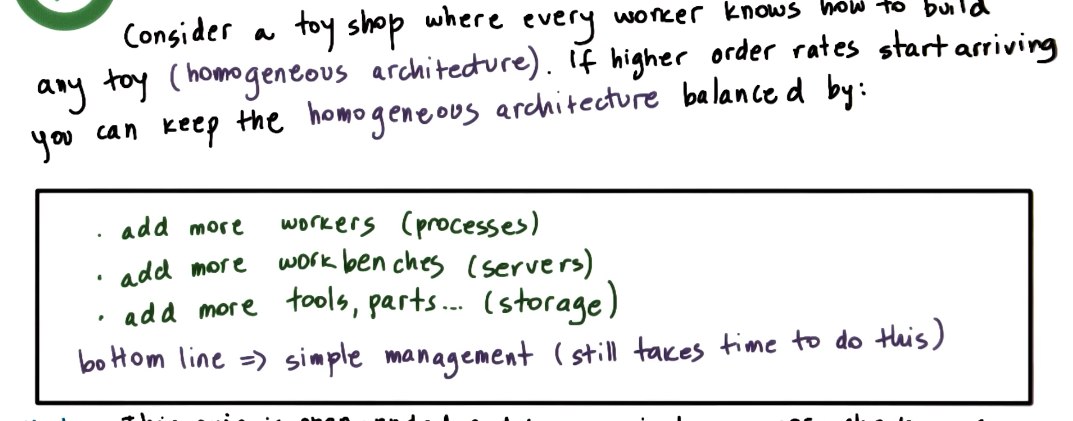 Consider a toy shop where every worker knows how to build
any toy (homogeneous architecture). If higher order rates start arriving
you can keep the homogeneous architecture balanced by:
. add more workers (processes)
. add more workbenches (servers)
. add more tools, parts... (storage)
bottom line => simple management (still takes time to do this)